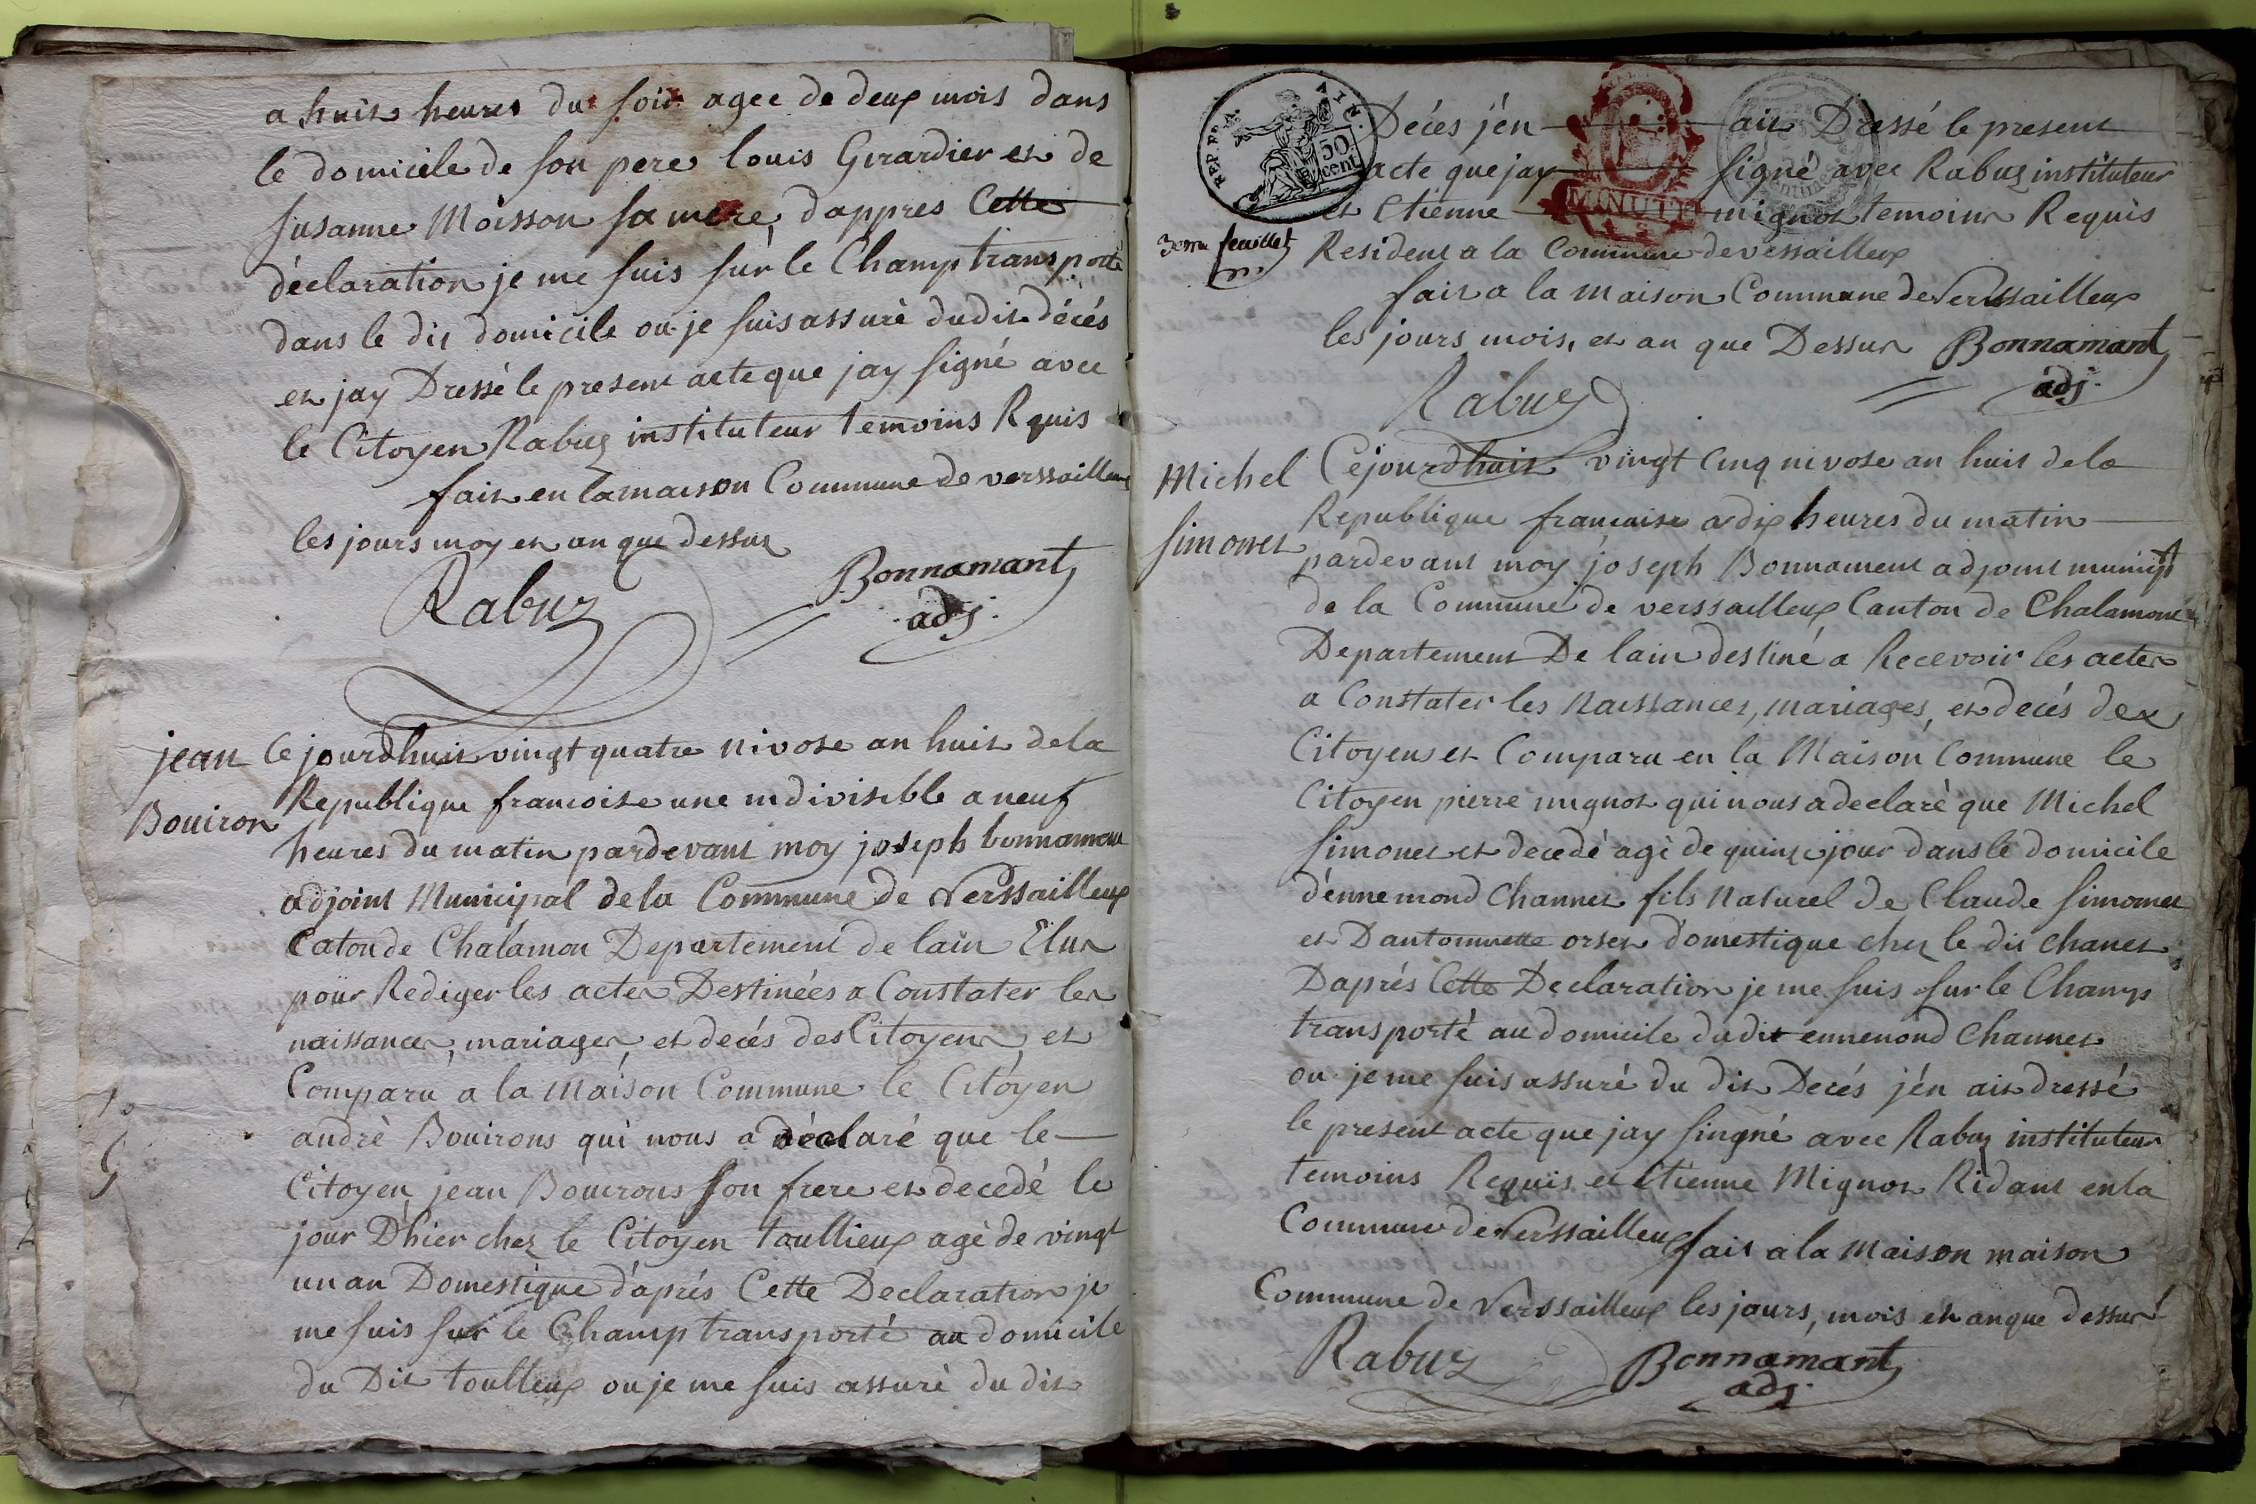 a huit heures du soir agee de deux mois dans
le domicile de son pere louis Girardier et de
susanne Moisson sa mere, dappres Cette
déclaration je me suis sur le Champ transporté
dans le dit domicile ou je suis assuré dudit décés
et jay Dressé le present acte que jay signé avec
le Citoyen Rabuz instituteur temoins Requis
fait en la maison Commune de verssailleux
les jours moy et an que dessus
Rabuz
Bonnamant
adj.
jean
Bouiron
Ce jourdhuit vingt quatre nivose an huit de la
Republique francoise une indivisible a neuf
heures du matin pardevant moy joseph bonnamant
adjoint Municipal de la Commune de Verssailleux
Caton de Chalamon Departement de lain Elus
pour Rediger les actes Destinées a Constater les
naissances, mariages, et decés des Citoyens, et
Comparu a la Maison Commune le Citoyen
andrè Bouirons qui nous a déclaré que le
Citoyen jean Bouirons son frere et decedé le
jour D'hier chez le Citoyen toullieux agè de vingt
un an Domestique d'aprés Cette Declaration je
me suis sur le Champ transporté au domicile
du Dit toullieux ou je me suis assuré du dit
REP. FRA.
50 cent.
MINUTE
3eme feuillet
Décés j'én ait Dressé le present
acte que jay signé avec Rabuz instituteur
et Etienne mignot temoins Requis
Resident a la Commune de verssailleux
fait a la Maison Commune de Verssailleux
les jours mois, et an que Dessus Bonnamant
adj.
Rabuz
Michel
Simonet
Cejourdhuit vingt cinq nivose an huit de la
Republique francaise a dix heures du matin
pardevant moy joseph Bonnament adjoint municip
de la Commune de verssailleux Canton de Chalamont
Departement De lain destiné a Recevoir les actes
a Constater les Naissances, mariages, et decés des
Citoyens et Comparu en la Maison Commune le
Citoyen pierre mignot qui nous a declaré que Michel
Simonet et decedé agè de quinze jour dans le domicile
d'ennemond Channet fils Naturel de Claude Simonet
et Dantoinette orset domestique chez le dit chanet
Daprés Cette Declaration je me suis sur le Champ
transporté au domicile dudit ennemond Channet
ou je me suis assuré du dit Decés j'én ait dressé
le present acte que jay singné avec Rabuz instituteur
temoins Requis et Etienne Mignot Ridant en la
Commune de Verssailleux fait a la Maison maison
Commune de Verssailleux les jours, mois et an que dessus
Rabuz
Bonnamant
adj.